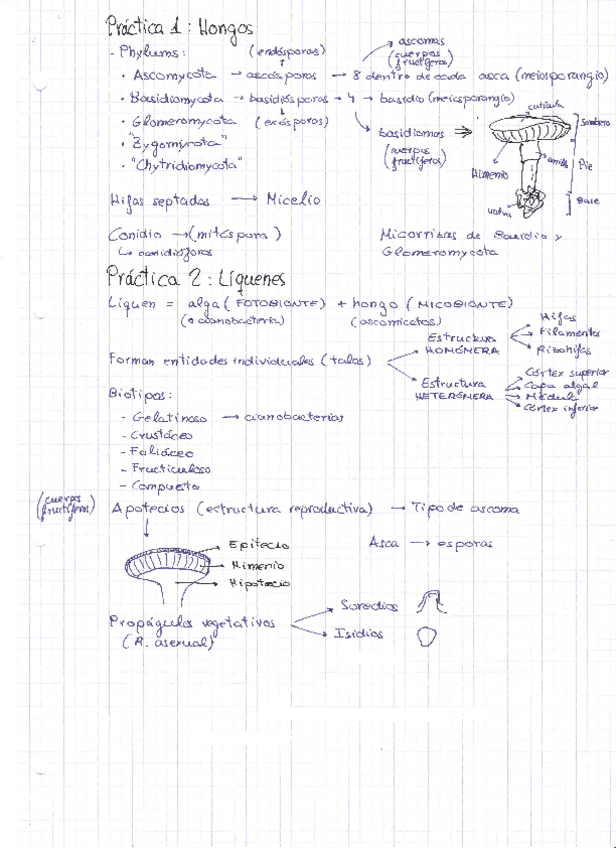 Práctica 1: Hongos
- Phylums: (endósporas) ascomas
(cuerpos fructíferos)
• Ascomycota → ascósporas → 8 dentro de cada asca (meiosporangio)
• Basidiomycota → basidiósporas → 4 → basidio (meiosporangio)
• Glomeromycota (exósporas)
• "Zygomycota"
• "Chytridiomycota"
basidiomas ⇒
(cuerpos fructíferos)
cutícula
Sombrero
Himenio
anillo
Pie
volva
Base
Hifas septadas → Micelio
Conidio → (mitóspora)
↳ conidióforos
Micorrizas de Basidio y
Glomeromycota
Práctica 2: Líquenes
Liquen = alga (FOTOBIONTE) + hongo (MICOBIONTE)
(o cianobacteria) (ascomicetos)
Forman entidades individuales (talos)
Estructura
HOMÓMERA
Hifas
Filamentos
Rizohifas
Estructura
HETERÓMERA
Córtex superior
Capa algal
Médula
Córtex inferior
Biotipos:
- Gelatinoso → cianobacterias
- Crustáceo
- Foliáceo
- Fructiculoso
- Compuesto
(cuerpos fructíferos) Apotecios (estructura reproductiva) → Tipo de ascoma
Epitecio
Himenio
Hipotecio
Asca → esporas
Propágulos vegetativos
(R. asexual)
Soredios
Isidios